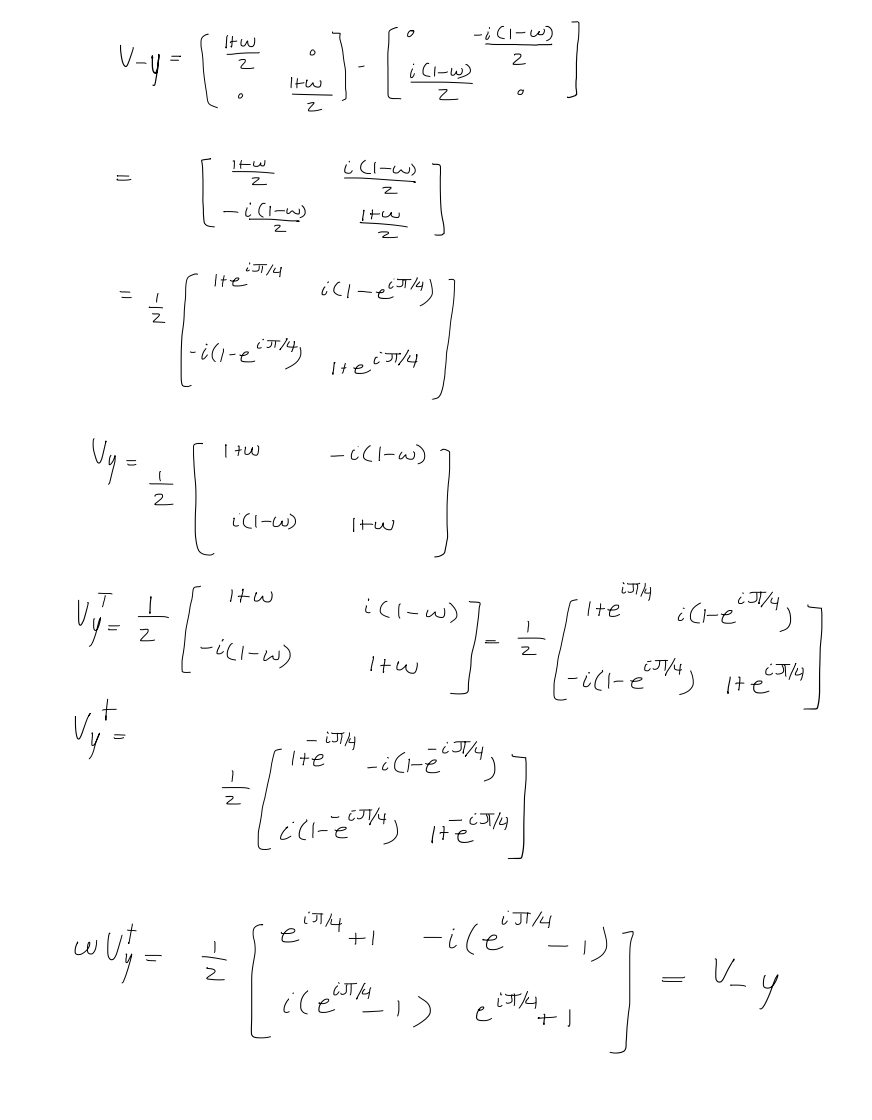 V_{-y} = \begin{bmatrix} \frac{1+ω}{2} & 0 \\ 0 & \frac{1+ω}{2} \end{bmatrix} - \begin{bmatrix} 0 & \frac{-i(1-ω)}{2} \\ \frac{i(1-ω)}{2} & 0 \end{bmatrix}
= \begin{bmatrix} \frac{1+ω}{2} & \frac{i(1-ω)}{2} \\ \frac{-i(1-ω)}{2} & \frac{1+ω}{2} \end{bmatrix}
= \frac{1}{2} \begin{bmatrix} 1+e^{iπ/4} & i(1-e^{iπ/4}) \\ -i(1-e^{iπ/4}) & 1+e^{iπ/4} \end{bmatrix}
V_y = \frac{1}{2} \begin{bmatrix} 1+ω & -i(1-ω) \\ i(1-ω) & 1+ω \end{bmatrix}
V_y^T = \frac{1}{2} \begin{bmatrix} 1+ω & i(1-ω) \\ -i(1-ω) & 1+ω \end{bmatrix} = \frac{1}{2} \begin{bmatrix} 1+e^{iπ/4} & i(1-e^{iπ/4}) \\ -i(1-e^{iπ/4}) & 1+e^{iπ/4} \end{bmatrix}
V_y^† = \frac{1}{2} \begin{bmatrix} 1+e^{-iπ/4} & -i(1-e^{-iπ/4}) \\ i(1-e^{-iπ/4}) & 1+e^{-iπ/4} \end{bmatrix}
ωV_y^† = \frac{1}{2} \begin{bmatrix} e^{iπ/4}+1 & -i(e^{iπ/4}-1) \\ i(e^{iπ/4}-1) & e^{iπ/4}+1 \end{bmatrix} = V_{-y}